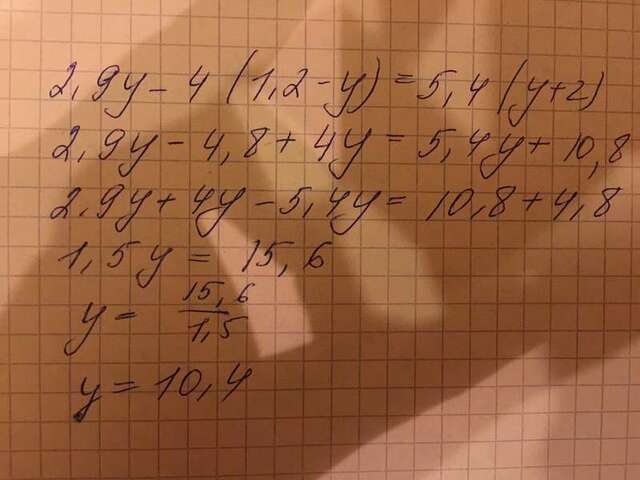 2,9y - 4 (1,2 - y) = 5,4 (y + 2)
2,9y - 4,8 + 4y = 5,4y + 10,8
2,9y + 4y - 5,4y = 10,8 + 4,8
1,5y = 15,6
y = 15,6/1,5
y = 10,4